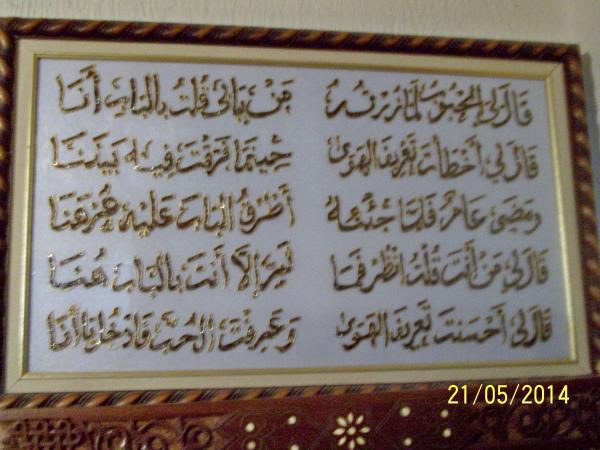 قال لي المحبوب لما زرته من ببابي قلت بالباب أنا
قال لي أخطأت تعريف الهوى حينما فرقت فيه بيننا
ومضى عام فلما جئته أطرق الباب عليه موهنا
قال لي من أنت قلت انظر فما ليس إلا أنت بالباب هنا
قال لي أحسنت تعريف الهوى وعرفت الحب فادخل يا أنا
21/05/2014